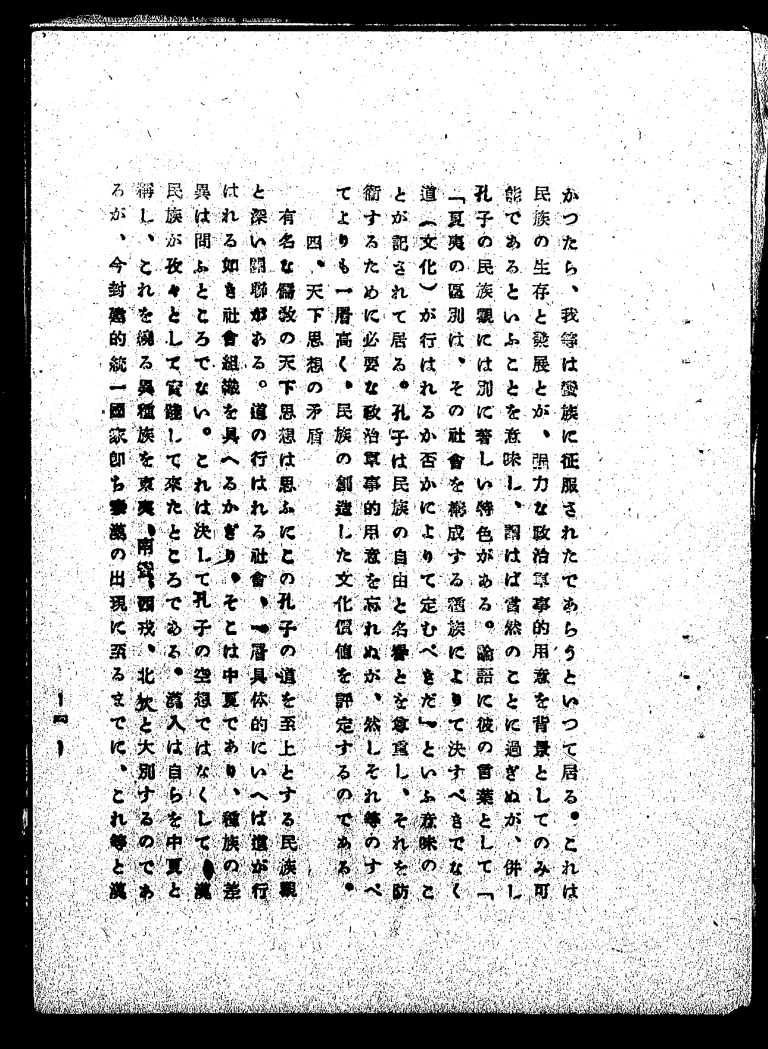 かつたら、我等は蠻族に征服されたであらうといつて居る。これは
民族の生存と發展とが、强力な政治軍事的用意を背景としてのみ可
能であるといふことを意味し、謂はば當然のことに過ぎぬが、併し
孔子の民族觀には別に著しい特色がある。論語に彼の言葉として「
「夏夷の區別は、その社會を構成する種族によりて決すべきでなく
道(文化)が行はれるか否かによりて定むべきだ」といふ意味のこ
とが記されて居る。孔子は民族の自由と名譽とを尊重し、それを防
衞するために必要な政治軍事的用意を忘れぬが、然しそれ等のすべ
てよりも一層高く、民族の創造した文化價値を評定するのである。
四、天下思想の矛盾
有名な儒敎の天下思想は思ふにこの孔子の道を至上とする民族觀
と深い關聯がある。道の行はれる社會、一層具体的にいへば道が行
はれる如き社會組織を具へるかぎり、そこは中夏であり、種族の差
異は問ふところでない。これは決して孔子の空想ではなくして、漢
民族が孜々として實踐して來たところである。漢人は自らを中夏と
稱し、これを繞る異種族を東夷、南蠻、西戎、北狄と大別するのであ
るが、今封建的統一國家卽ち秦漢の出現に至るまでに、これ等と漢
一四